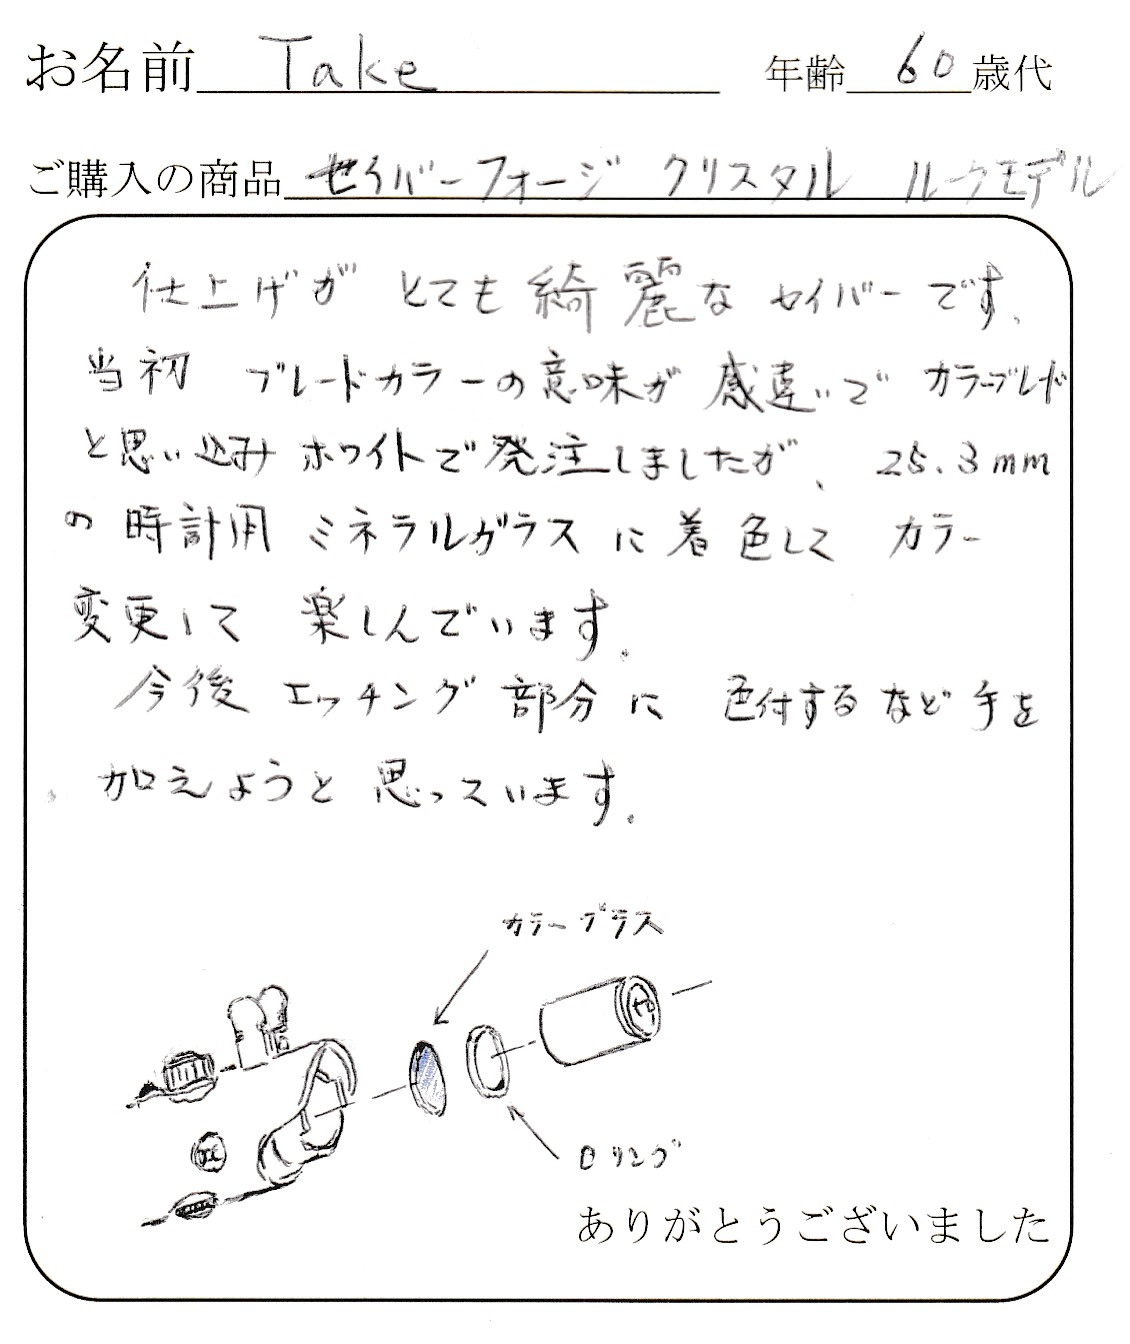 お名前 Take 年齢 60 歳代
ご購入の商品 セイバーフォージ クリスタル ルークモデル
仕上げが とても綺麗な セイバーです.
当初 ブレードカラーの意味が 感違いで カラーブレード
と思い込み ホワイトで発注しましたが、 25.3mm
の時計用 ミネラルガラスに着色して カラー
変更して 楽しんでいます.
今後 エッチング部分に 色付するなど手を
加えようと思っています.
カラーグラス
Oリング
ありがとうございました